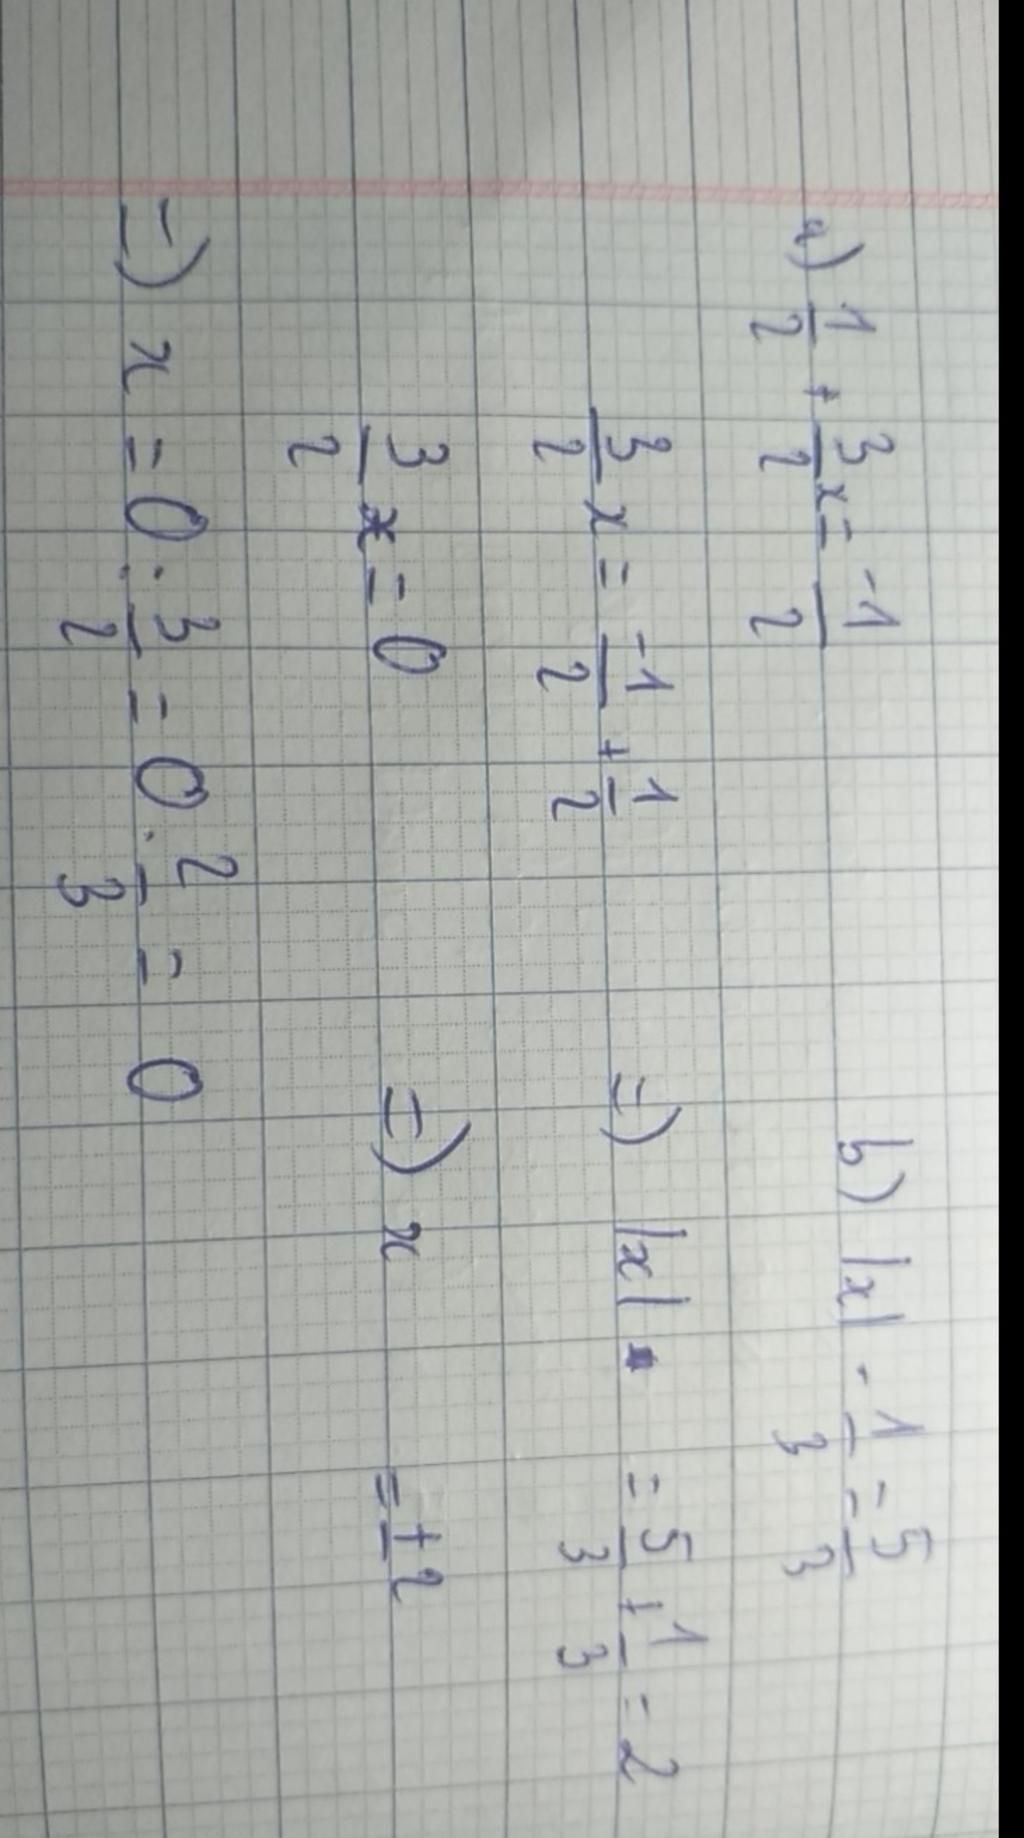 a) 1/2 + 3/2 x = -1/2
3/2 x = -1/2 + 1/2
3/2 x = 0
=) x = 0 : 3/2 = 0 . 2/3 = 0
b) |x| - 1/3 = 5/3
=) |x| = 5/3 + 1/3 = 2
=) x = ±2